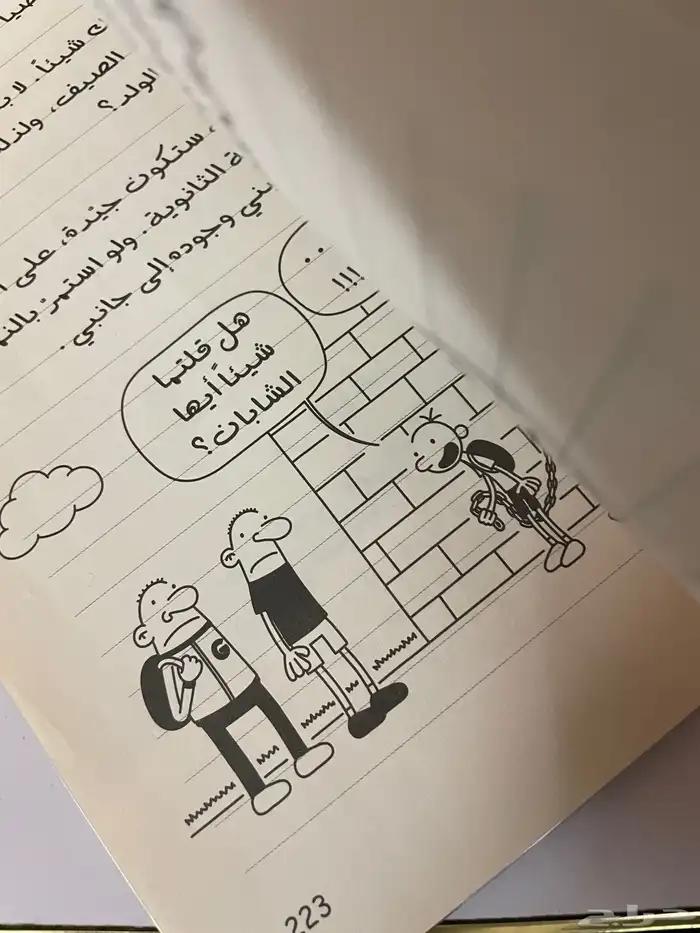 شيئاً. لا
الصيف، ولذلك
الولد؟
، ستكون جيّدة، على
الثانوية. ولو استمرّ
وجوده إلى جانبي.
!!!
هل قلتما
شيئاً أيها
الشابان؟
G
223
حراج